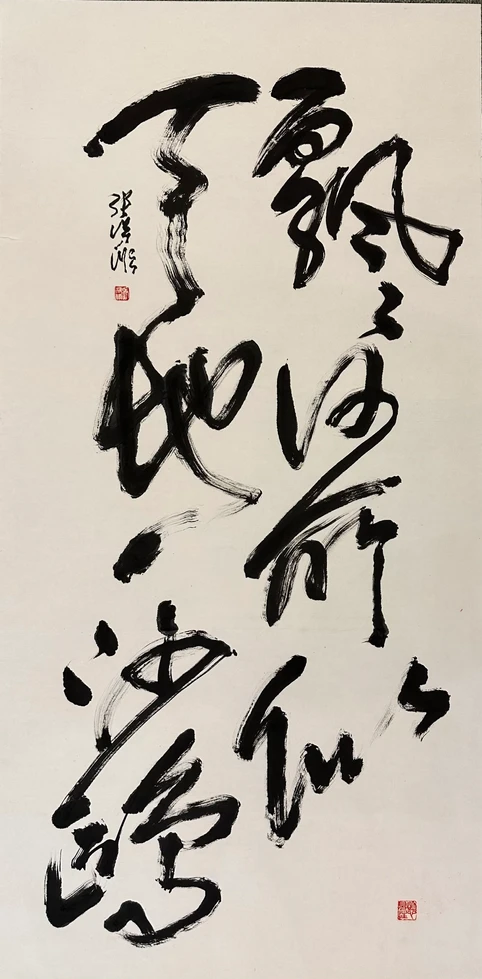 飘飘何所似
天地一沙鸥